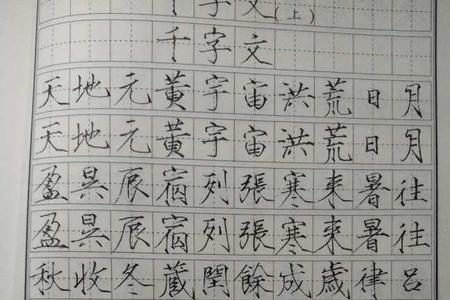 千字文(上)
千字文
天地元黄宇宙洪荒日月
天地元黄宇宙洪荒日月
盈昃辰宿列張寒来暑往
盈昃辰宿列張寒來暑往
秋收冬藏閏餘成歲律吕